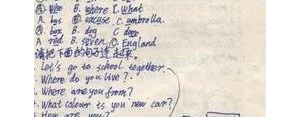 Ⓐ. Who B. Where C. What
A. bus Ⓑ. excuse. C. umbrella.
Ⓐ. box B. dog C door
A red B. seven Ⓒ. England
请把下面的句子连起来。
Let's go to school together.
Where do you live?
Where are you from?
What colour is you new car?
How are you?